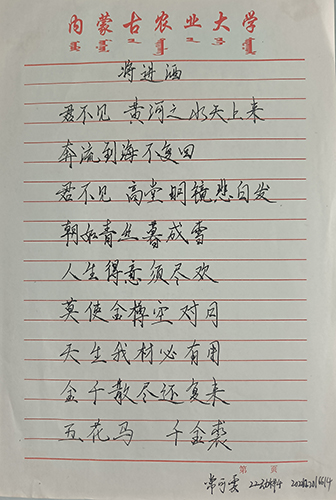 内蒙古农业大学
将进酒
君不见 黄河之水天上来
奔流到海不复回
君不见 高堂明镜悲白发
朝如青丝暮成雪
人生得意须尽欢
莫使金樽空对月
天生我材必有用
金千散尽还复来
五花马 千金裘
第 页